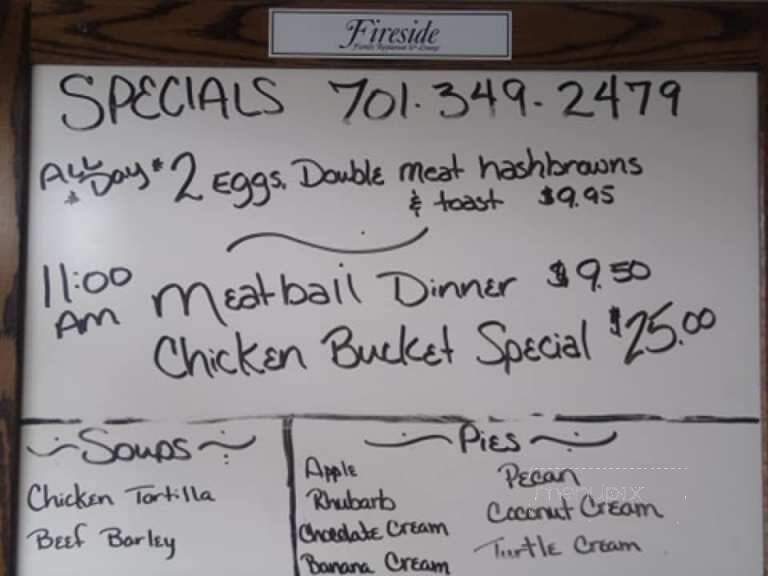 Fireside
Family Restaurant & Lounge
SPECIALS 701-349-2479
All Day 2 Eggs, Double meat hashbrowns
& toast $9.95
11:00 Am
Meatball Dinner $9.50
Chicken Bucket Special $25.00
Soups
Chicken Tortilla
Beef Barley
Pies
Apple
Rhubarb
Chocolate Cream
Banana Cream
Pecan
Coconut Cream
Turtle Cream
menupix